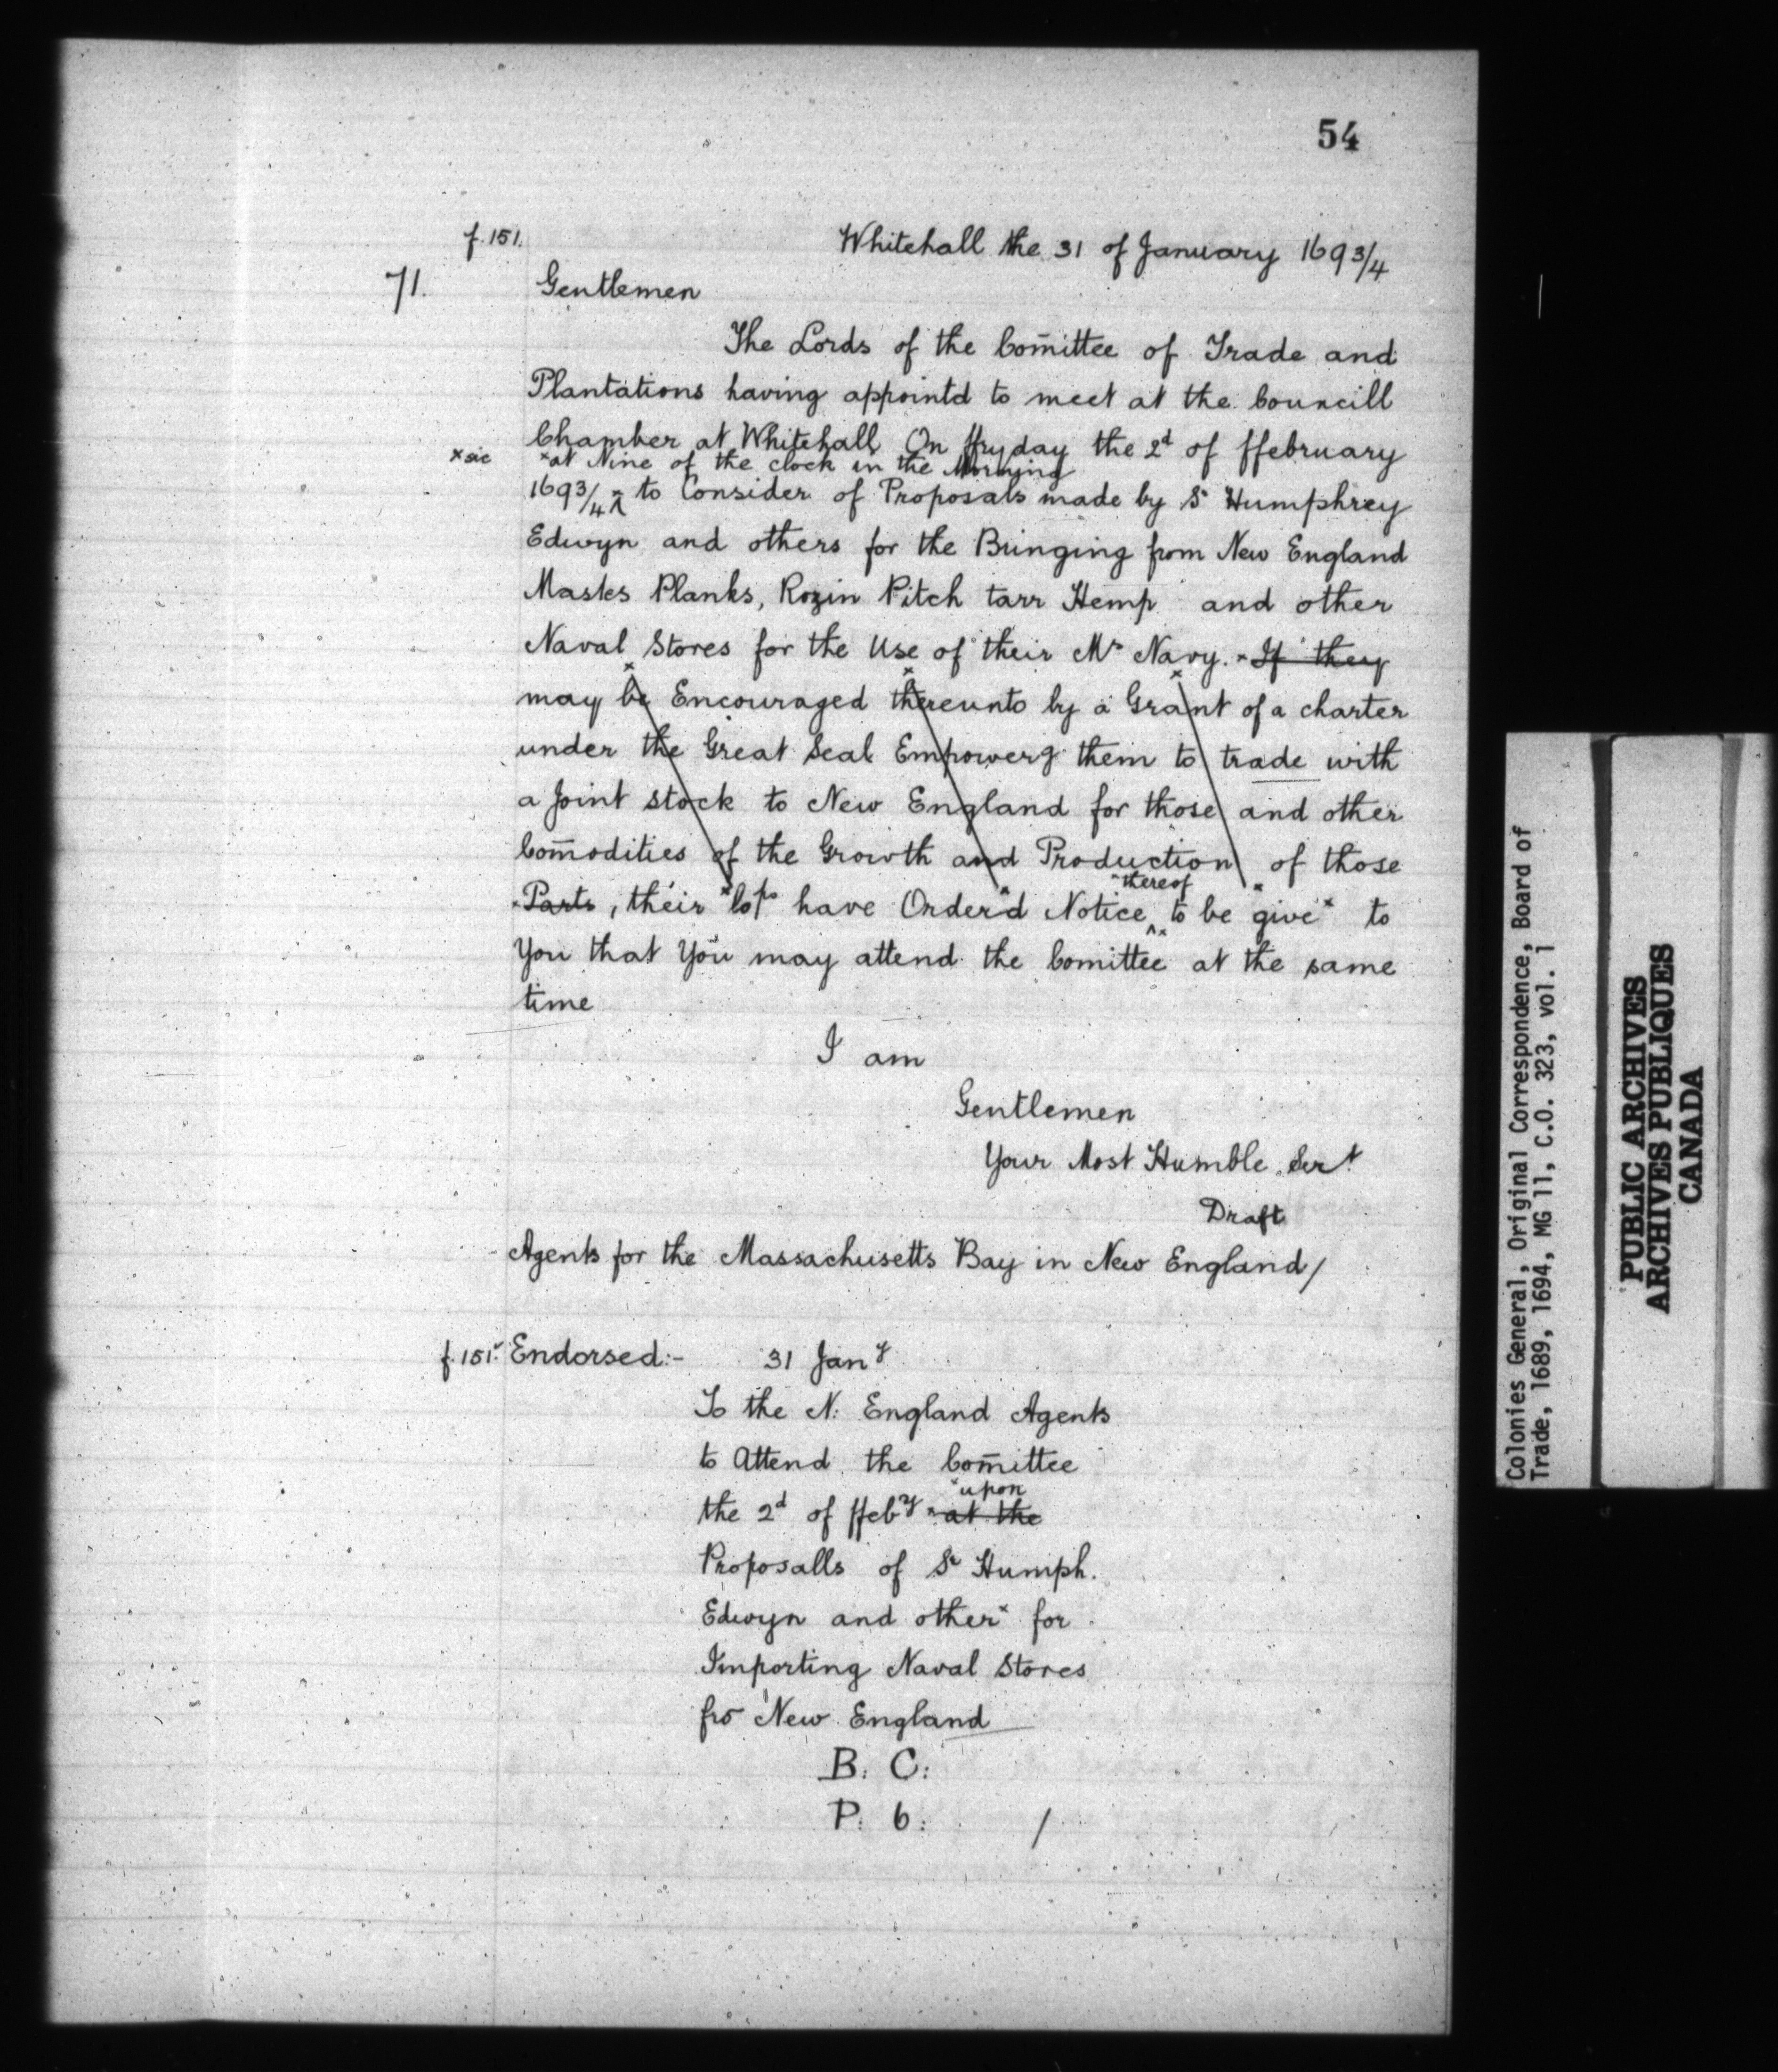 54
f. 151.
Whitehall the 31 of January 1693/4
71.
Gentlemen
The Lords of the Com̄ittee of Trade and
Plantations having appointd to meet at the Councill
Chamber at Whitehall On ffryday the 2d of ffebruary
x sic
x at Nine of the clock in the Morning
1693/4 ^ to Consider of Proposals made by Sr Humphrey
Edwyn and others for the Bringing from New England
Mastes Planks, Rozin Pitch tarr Hemp and other
Naval Stores for the Use of their Ms Navy. x If they
may be Encouraged thereunto by a Grant of a charter
under the Great Seal Empowerg them to trade with
a Joint Stock to New England for those and other
Com̄odities of the Growth and Production of those
x thereof
x Parts, their x Lops have Order'd Notice ^x to be give x to
You that You may attend the Comittee at the same
time
I am
Gentlemen
Your Most Humble Sert
Draft
Agents for the Massachusetts Bay in New England/
f. 151v Endorsed:- 31 Jany
To the N: England Agents
to Attend the Com̄ittee
x upon
the 2d of ffeby x at the
Proposalls of Sr Humph.
Edwyn and other x for
Importing Naval Stores
frō New England
B: C:
P. 6: /
Colonies General, Original Correspondence, Board of
Trade, 1689, 1694, MG 11, C.O. 323, vol. 1
PUBLIC ARCHIVES
ARCHIVES PUBLIQUES
CANADA